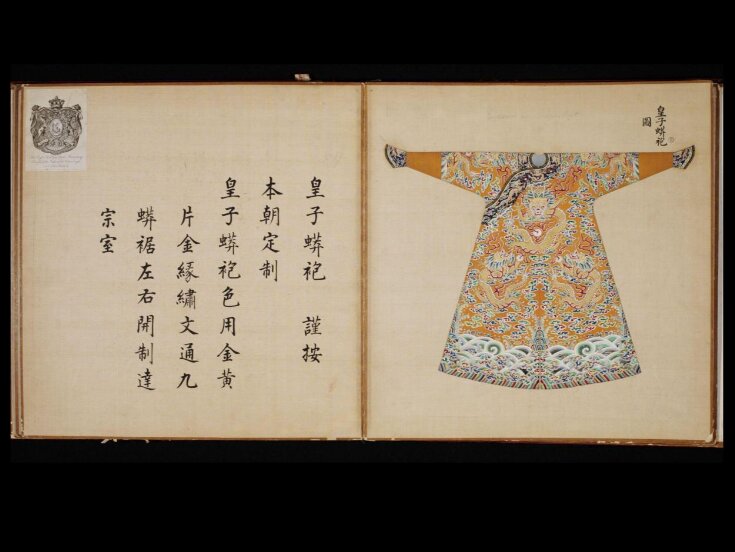 皇子蟒袍　謹按
本朝定制
皇子蟒袍色用金黄
片金緣繡文通九
蟒裾左右開制達
宗室
皇子蟒袍
圖